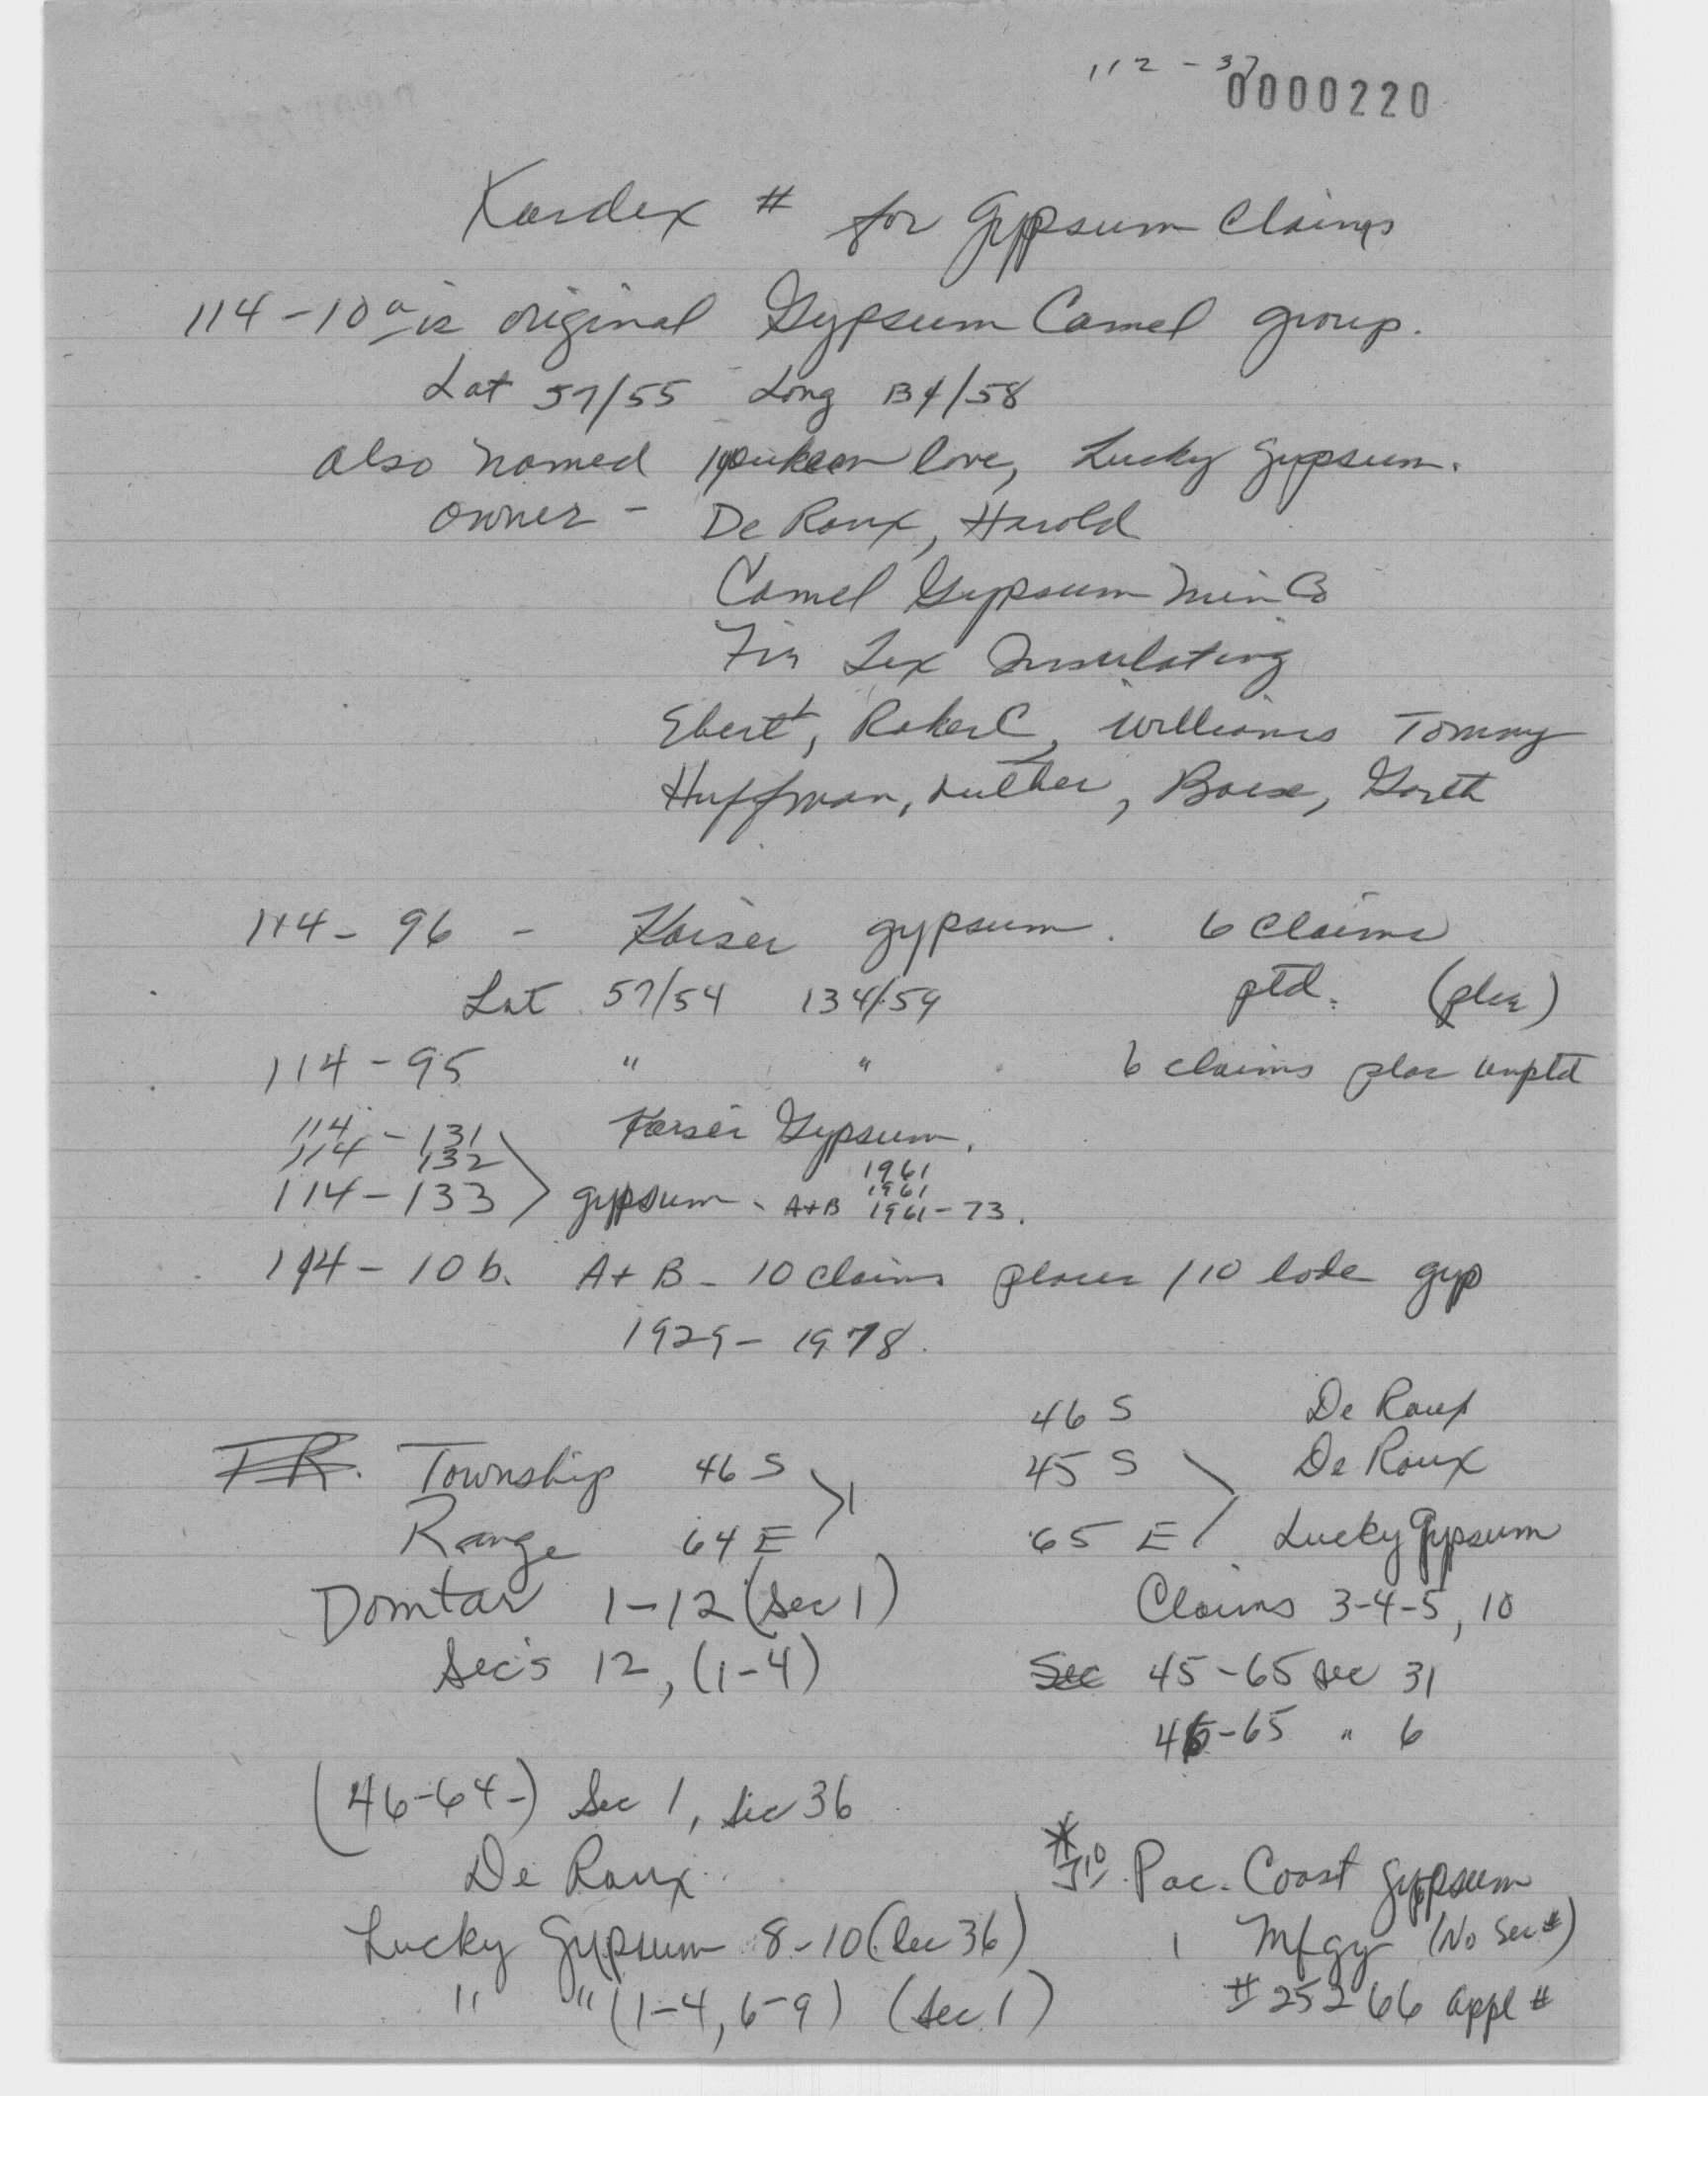 112 - 37
0000220
Kardex # for Gypsum Claims
114-10a is original Gypsum Camel group.
Lat 57/55 Long 134/58
also named love, Lucky Gypsum.
owner - De Roux, Harold
Camel Gypsum Min Co
Fir Tex Insulating
Ebert, Robert C, Williams Tommy
Huffman, Luther, Garth
114-96 - Kaiser gypsum. 6 Claims
Lat 57/54 134/59 ptd. (plac)
114-95 " " 6 claims plac unptd
114-131 Kaiser Gypsum.
114 132 1961
1961
114-133 gypsum - A+B 1961-73.
114-10b. A+B - 10 claims placer / 10 lode gyp
1929-1978.
46 S De Roux
T R. Township 46 S 45 S De Roux
Range 64 E 65 E Lucky Gypsum
Domtar 1-12 (Sec 1) Claims 3-4-5, 10
Sec's 12, (1-4) Sec 45-65 sec 31
46-65 " 6
(46-64-) Sec 1, Sec 36
De Roux. * Pac. Coast Gypsum
Lucky Gypsum 8-10 (Sec 36) Mfgy (No Sec #)
" " (1-4, 6-9) (Sec 1) #25266 appl #